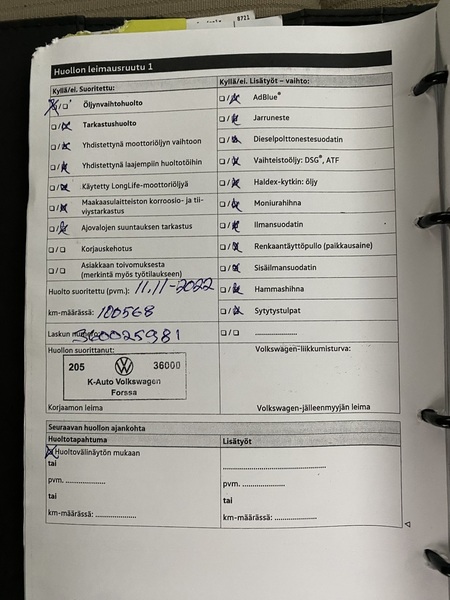 8711
Huollon leimausruutu 1
Kyllä/ei. Suoritettu:
Kyllä/ei. Lisätyöt – vaihto:
☒/☐ Öljynvaihtohuolto
☐/☒ AdBlue®
☐/☒ Tarkastushuolto
☐/☒ Jarruneste
☐/☒ Yhdistettynä moottoriöljyn vaihtoon
☐/☒ Dieselpolttonestesuodatin
☐/☒ Yhdistettynä laajempiin huoltotöihin
☐/☒ Vaihteistoöljy: DSG®, ATF
☐/☒ Käytetty LongLife-moottoriöljyä
☐/☒ Haldex-kytkin: öljy
☐/☒ Maakaasulaitteiston korroosio- ja tii-
viystarkastus
☐/☒ Moniurahihna
☐/☒ Ajovalojen suuntauksen tarkastus
☐/☒ Ilmansuodatin
☐/☐ Korjauskehotus
☐/☒ Renkaantäyttöpullo (paikkausaine)
☐/☐ Asiakkaan toivomuksesta
(merkintä myös työtilaukseen)
☐/☒ Sisäilmansuodatin
Huolto suoritettu (pvm.): 11.11-2022
☐/☒ Hammashihna
km-määrässä: 100568
☐/☒ Sytytystulpat
Laskun 360025981
☐/☐ ....................
Huollon suorittanut:
205 36000
K-Auto Volkswagen
Forssa
Korjaamon leima
Volkswagen-liikkumisturva:
Volkswagen-jälleenmyyjän leima
Seuraavan huollon ajankohta
Huoltotapahtuma
Lisätyöt
☒ Huoltovälinäytön mukaan
tai
pvm. ....................
pvm. ....................
tai
tai
km-määrässä: ....................
km-määrässä: ....................